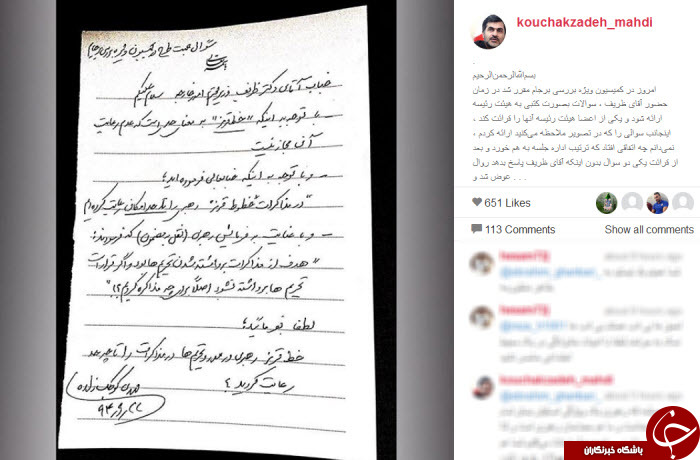 سوال جهت طرح در کمیسیون ویژه بررسی برجام
جناب آقای دکتر ظریف وزیر محترم امور خارجه سلام علیکم
با توجه به اینکه "خط قرمز" به معنی حدی است که عدم رعایت
آن مجاز نیست
– و با توجه به اینکه جنابعالی فرموده اید:
"در مذاکرات خطوط قرمز رهبری را تا حد امکان رعایت کرده ایم"
– و با عنایت به فرمایش رهبری (نقل به مضمون) که فرمودند:
"هدف از مذاکرات برداشته شدن تحریم ها بود و اگر قرار است
تحریم ها برداشته نشود اصلاً برای چه مذاکره کردیم؟!"
لطفا بفرمائید:
خط قرمز رهبری در مورد تحریم ها در مذاکرات را تا چه حد
رعایت کردید؟
مهدی کوچک زاده
kouchakzadeh_mahdi
.
بسم‌الله‌الرحمن‌الرحیم
امروز در کمیسیون ویژه بررسی برجام مقرر شد در زمان
حضور آقای ظریف ، سوالات بصورت کتبی به هیئت رئیسه
ارائه شود و یکی از اعضا هیئت رئیسه آنها را قرائت کند .
اینجانب سوالی را که در تصویر ملاحظه می‌کنید ارائه کردم ،
نمی‌دانم چه اتفاقی افتاد که ترتیب اداره جلسه به هم خورد و بعد
از قرائت یکی دو سوال بدون اینکه آقای ظریف پاسخ بدهد روال
عوض شد و . . .
651 Likes
113 Comments
Show all comments
kouchakzadeh_mahdi
باشگاه خبرنگاران